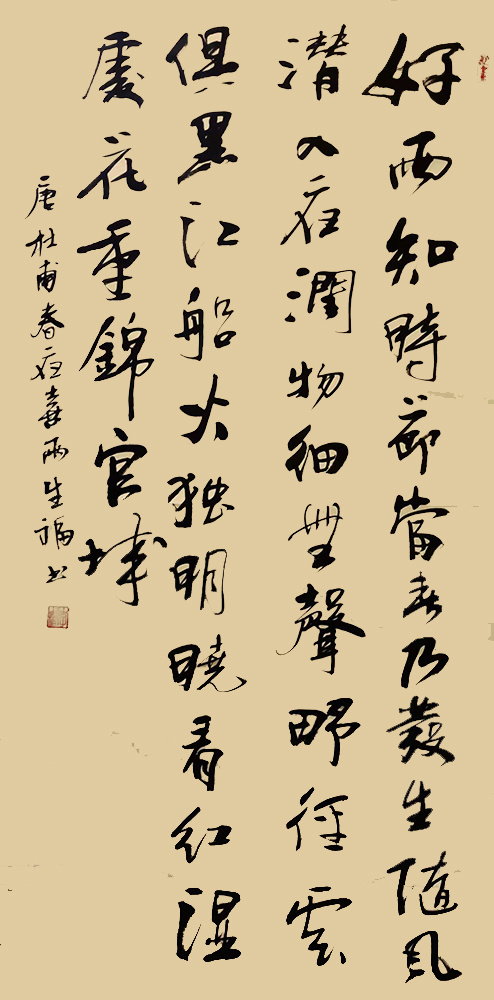 好雨知時節當春乃發生隨風
潛入夜潤物細無聲野徑雲
俱黑江船火独明曉看红湿
處花重錦官城
唐杜甫春夜喜雨生福书